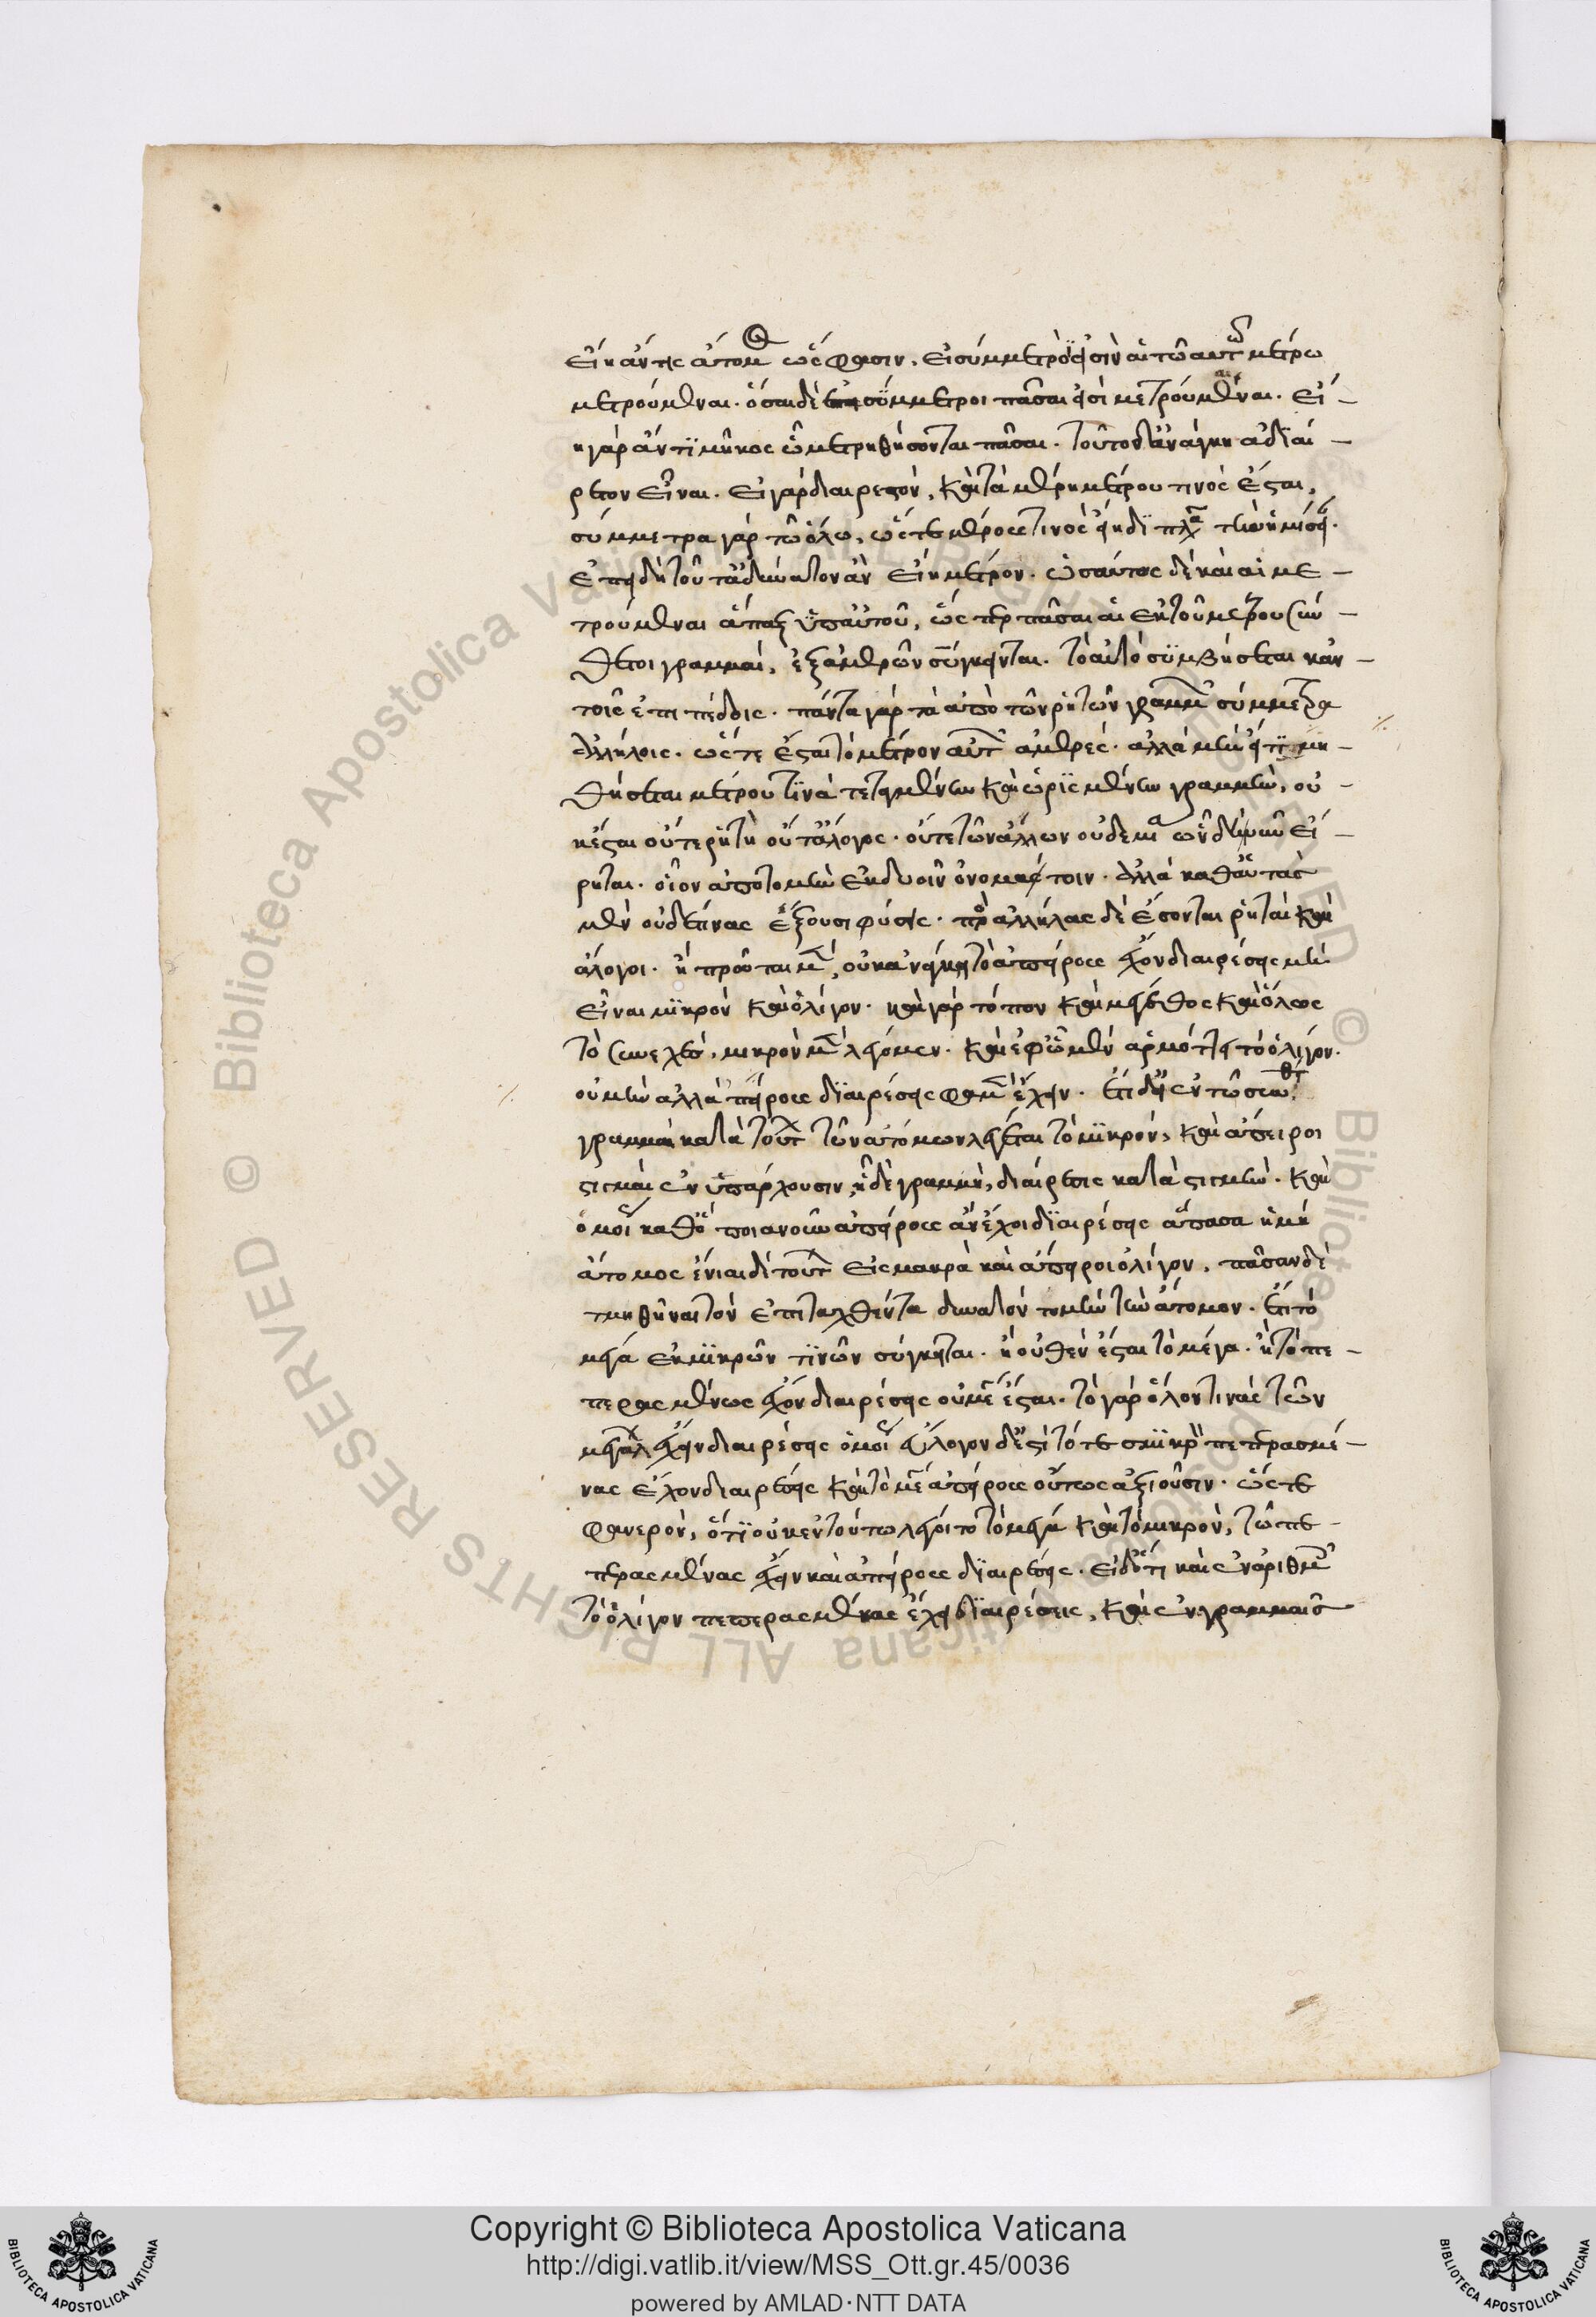 εἴη ἄν τις ἄτομος ὥς φασιν. εἰ σύμμετροί εἰσιν αἱ τῶ αὐτῶ μέτρω
μετρούμεναι. ὅσαι δὲ σύμμετροι πᾶσαι εἰσὶ μετρούμεναι. εἴ-
η γὰρ ἄν τι μῆκος ᾧ μετρηθήσονται πᾶσαι. τοῦτο δ' ἀνάγκη ἀδιαί-
ρετον εἶναι. εἰ γὰρ διαιρετὸν, καὶ τὰ μέρη μέτρου τινὸς ἔσται.
σύμμετρα γὰρ τῶ ὅλω, ὥστε μέρους τινὸς εἴη διπλα τὴν ἡμίσει.
ἐπειδὴ τοῦτ' ἀδύνατον ἂν εἴη μέτρον. ὡσαύτως δὲ καὶ αἱ με-
τρούμεναι ἅπαξ ὑπ' αὐτοῦ, ὥσπερ πᾶσαι αἱ ἐκ τοῦ μέτρου σύν-
θετοι γραμμαὶ, ἐξ ἀμερῶν σύγκεινται. τὸ αὐτὸ συμβήσεται κἀν
τοῖς ἐπιπέδοις. πάντα γὰρ τὰ ἀπὸ τῶν ῥητῶν γραμμῶν σύμμετρα
ἀλλήλοις. ὥστε ἔσται τὸ μέτρον αὐτῶν ἀμερές. ἀλλὰ μὴν εἴ τι μη-
θήσεται μέτρου τινὰ τεταγμένην καὶ ὡρισμένην γραμμὴν, οὐ-
κ ἔσται οὔτε ῥητὴ οὔτ' ἄλογος. οὔτε τῶν ἄλλων οὐδεμία ὧν δὴ νῦν εἴ-
ρηται. οἷον ἀποτομὴν ἐκ δυοῖν ὀνομάτοιν. ἀλλὰ καθ' αὑτὰς
μὲν οὐδέ τινας ἕξουσι φύσεις. πρὸς ἀλλήλας δὲ ἔσονται ῥηταὶ καὶ
ἄλογοι. ἢ πρῶτον μὲν, οὐκ ἀνάγκη τὸ ἀπείρους ἔχον διαιρέσεις μὴ
εἶναι μικρὸν καὶ ὀλίγον. καὶ γὰρ τόπον καὶ μέγεθος καὶ ὅλως
τὸ συνεχὲς, μικρὸν μὲν λέγομεν. καὶ ἐφ' ὧν μὲν ἁρμόττει τὸ ὀλίγον.
οὐ μὴν ἀλλὰ ἀπείρους διαιρέσεις φαμὲν ἔχειν. ἔτι δ' εἰ ἐν τῶ συνθέτω
γραμμαὶ κατὰ τούτων τῶν ἀτόμων λέγεται τὸ μικρὸν, καὶ ἄπειροι
στιγμαὶ ἐνυπάρχουσιν, ἡ δὲ γραμμὴ, διαίρεσις κατὰ στιγμὴν. καὶ
ὁμοίως καθ' ὁποιανοῦν ἀπείρους ἂν ἔχοι διαιρέσεις ἅπασα ἡ μὴ
ἄτομος ἔνιαι δὲ τούτων εἰς μακρὰ καὶ ἄπειροι ὀλίγον. πᾶσαν δὲ
τμηθῆναι τὸν ἐπιταχθέντα δυνατὸν τομὴν τὴν ἄτομον. ἔτι τὸ
μέγα ἐκ μικρῶν τινῶν σύγκειται. ἢ οὐθὲν ἔσται τὸ μέγα. ἢ τὸ πε-
περασμένως ἔχον διαιρέσεις οὐ μέγα ἔσται. τὸ γὰρ ὅλον τινὰς τῶν
μεγάλων ἔχειν διαιρέσεις ὁμοίως εὔλογον δέ ἐστι τό τε σμικρὸν πεπερασμέ-
νας ἔχον διαιρέσεις καὶ τὸ μέγα ἀπείρους οὕτως ἀξιοῦσιν. ὥστε
φανερὸν, ὅτι οὐκ ἐν τούτω λέγοιτο τὸ μέγα καὶ τὸ μικρὸν, τῶ πε-
περασμένας ἔχειν καὶ ἀπείρους διαιρέσεις. εἰ δ' ὅτι καὶ ἐν ἀριθμοῖς
τὸ ὀλίγον πεπερασμένας ἔχει διαιρέσεις, καὶ ἐν γραμμαῖς
Copyright © Biblioteca Apostolica Vaticana
http://digi.vatlib.it/view/MSS_Ott.gr.45/0036
powered by AMLAD·NTT DATA